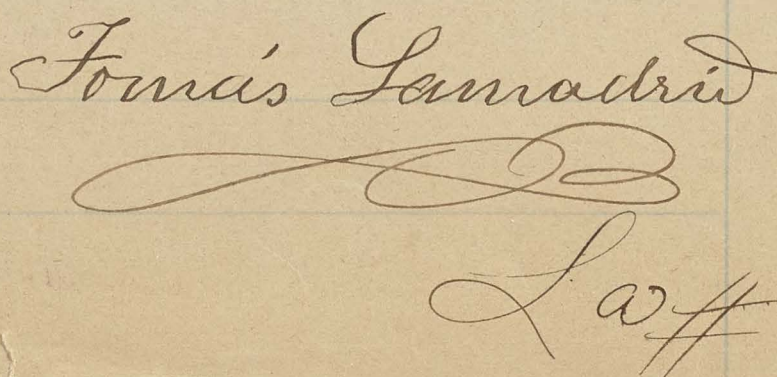 Tomás Lamadrid